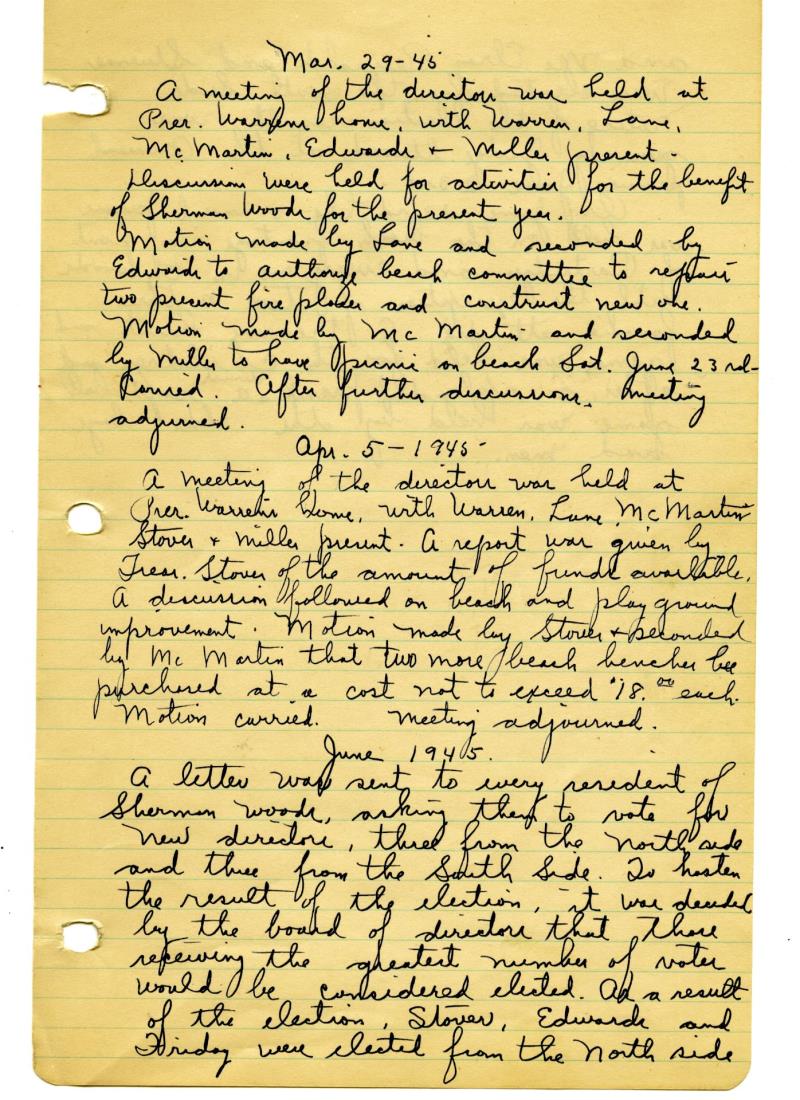 Mar. 29-45
A meeting of the directors was held at
Pres. Warrens home, with Warren, Lane,
McMartin, Edwards + Miller present.
Discussions were held for activities for the benefit
of Sherman Woods for the present year.
Motion made by Lane and seconded by
Edwards to authorize beach committee to repair
two present fire places and construct new one.
Motion made by McMartin and seconded
by Miller to have picnic on beach Sat. June 23rd-
Carried. After further discussions, meeting
adjourned.
Apr. 5-1945
A meeting of the directors was held at
Pres. Warrens home, with Warren, Lane, McMartin
Stover + Miller present. A report was given by
Treas. Stover of the amount of funds available.
A discussion followed on beach and play ground
improvement. Motion made by Stover + seconded
by McMartin that two more beach benches be
purchased at a cost not to exceed $18.00 each.
Motion carried. Meeting adjourned.
June 1945.
A letter was sent to every resident of
Sherman Woods, asking them to vote for
new directors, three from the North side
and three from the South Side. To hasten
the result of the election, it was decided
by the board of directors that those
receiving the greatest number of votes
would be considered elected. As a result
of the election, Stover, Edwards and
Friday were elected from the North side